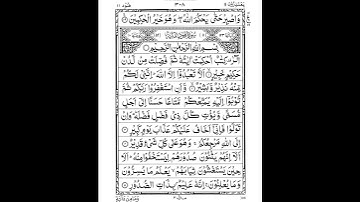 وَاصْبِرْ حَتّٰى يَحْكُمَ اللّٰهُ ۚ وَهُوَ خَيْرُ الْحٰكِمِيْنَ
بِسْمِ اللّٰهِ الرَّحْمٰنِ الرَّحِيْمِ
الٓرٰ كِتٰبٌ اُحْكِمَتْ اٰيٰتُهٗ ثُمَّ فُصِّلَتْ مِنْ لَّدُنْ
حَكِيْمٍ خَبِيْرٍ اَلَّا تَعْبُدُوْٓا اِلَّا اللّٰهَ اِنَّنِيْ لَكُمْ
مِّنْهُ نَذِيْرٌ وَّبَشِيْرٌ وَّاَنِ اسْتَغْفِرُوْا رَبَّكُمْ ثُمَّ
تُوْبُوْٓا اِلَيْهِ يُمَتِّعْكُمْ مَّتَاعًا حَسَنًا اِلٰٓى اَجَلٍ
مُّسَمًّى وَّيُؤْتِ كُلَّ ذِيْ فَضْلٍ فَضْلَهٗ وَاِنْ
تَوَلَّوْا فَاِنِّيْٓ اَخَافُ عَلَيْكُمْ عَذَابَ يَوْمٍ كَبِيْرٍ
اِلَى اللّٰهِ مَرْجِعُكُمْ وَهُوَ عَلٰى كُلِّ شَيْءٍ قَدِيْرٌ
اَلَآ اِنَّهُمْ يَثْنُوْنَ صُدُوْرَهُمْ لِيَسْتَخْفُوْا مِنْهُ اَلَا
حِيْنَ يَسْتَغْشُوْنَ ثِيَابَهُمْ يَعْلَمُ مَا يُسِرُّوْنَ
وَمَا يُعْلِنُوْنَ اِنَّهٗ عَلِيْمٌۢ بِذَاتِ الصُّدُوْرِ